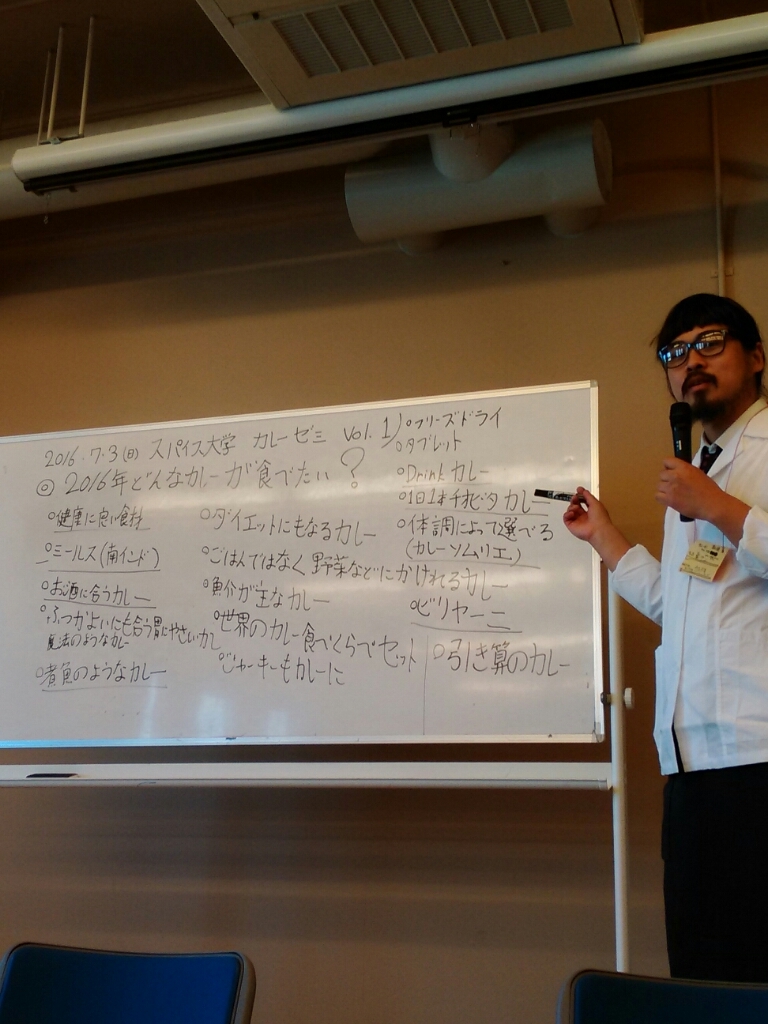 2016.7.3(日) スパイス大学 カレーゼミ Vol.1
◎2016年どんなカレーが食べたい?
○健康に良い食料
○ミールス(南インド)
○お酒に合うカレー
○ふつかよいにも合う胃にやさしいカレー
魔法のようなカレー
○煮魚のようなカレー
○ダイエットにもなるカレー
○ごはんではなく野菜などにかけれるカレー
○魚介が主なカレー
○世界のカレー食べくらべセット
○ジャーキーもカレーに
○フリーズドライ
○タブレット
○Drinkカレー
○1日1本チオビタカレー
○体調によって選べる
(カレーソムリエ)
○ビリヤーニ
○引き算のカレー